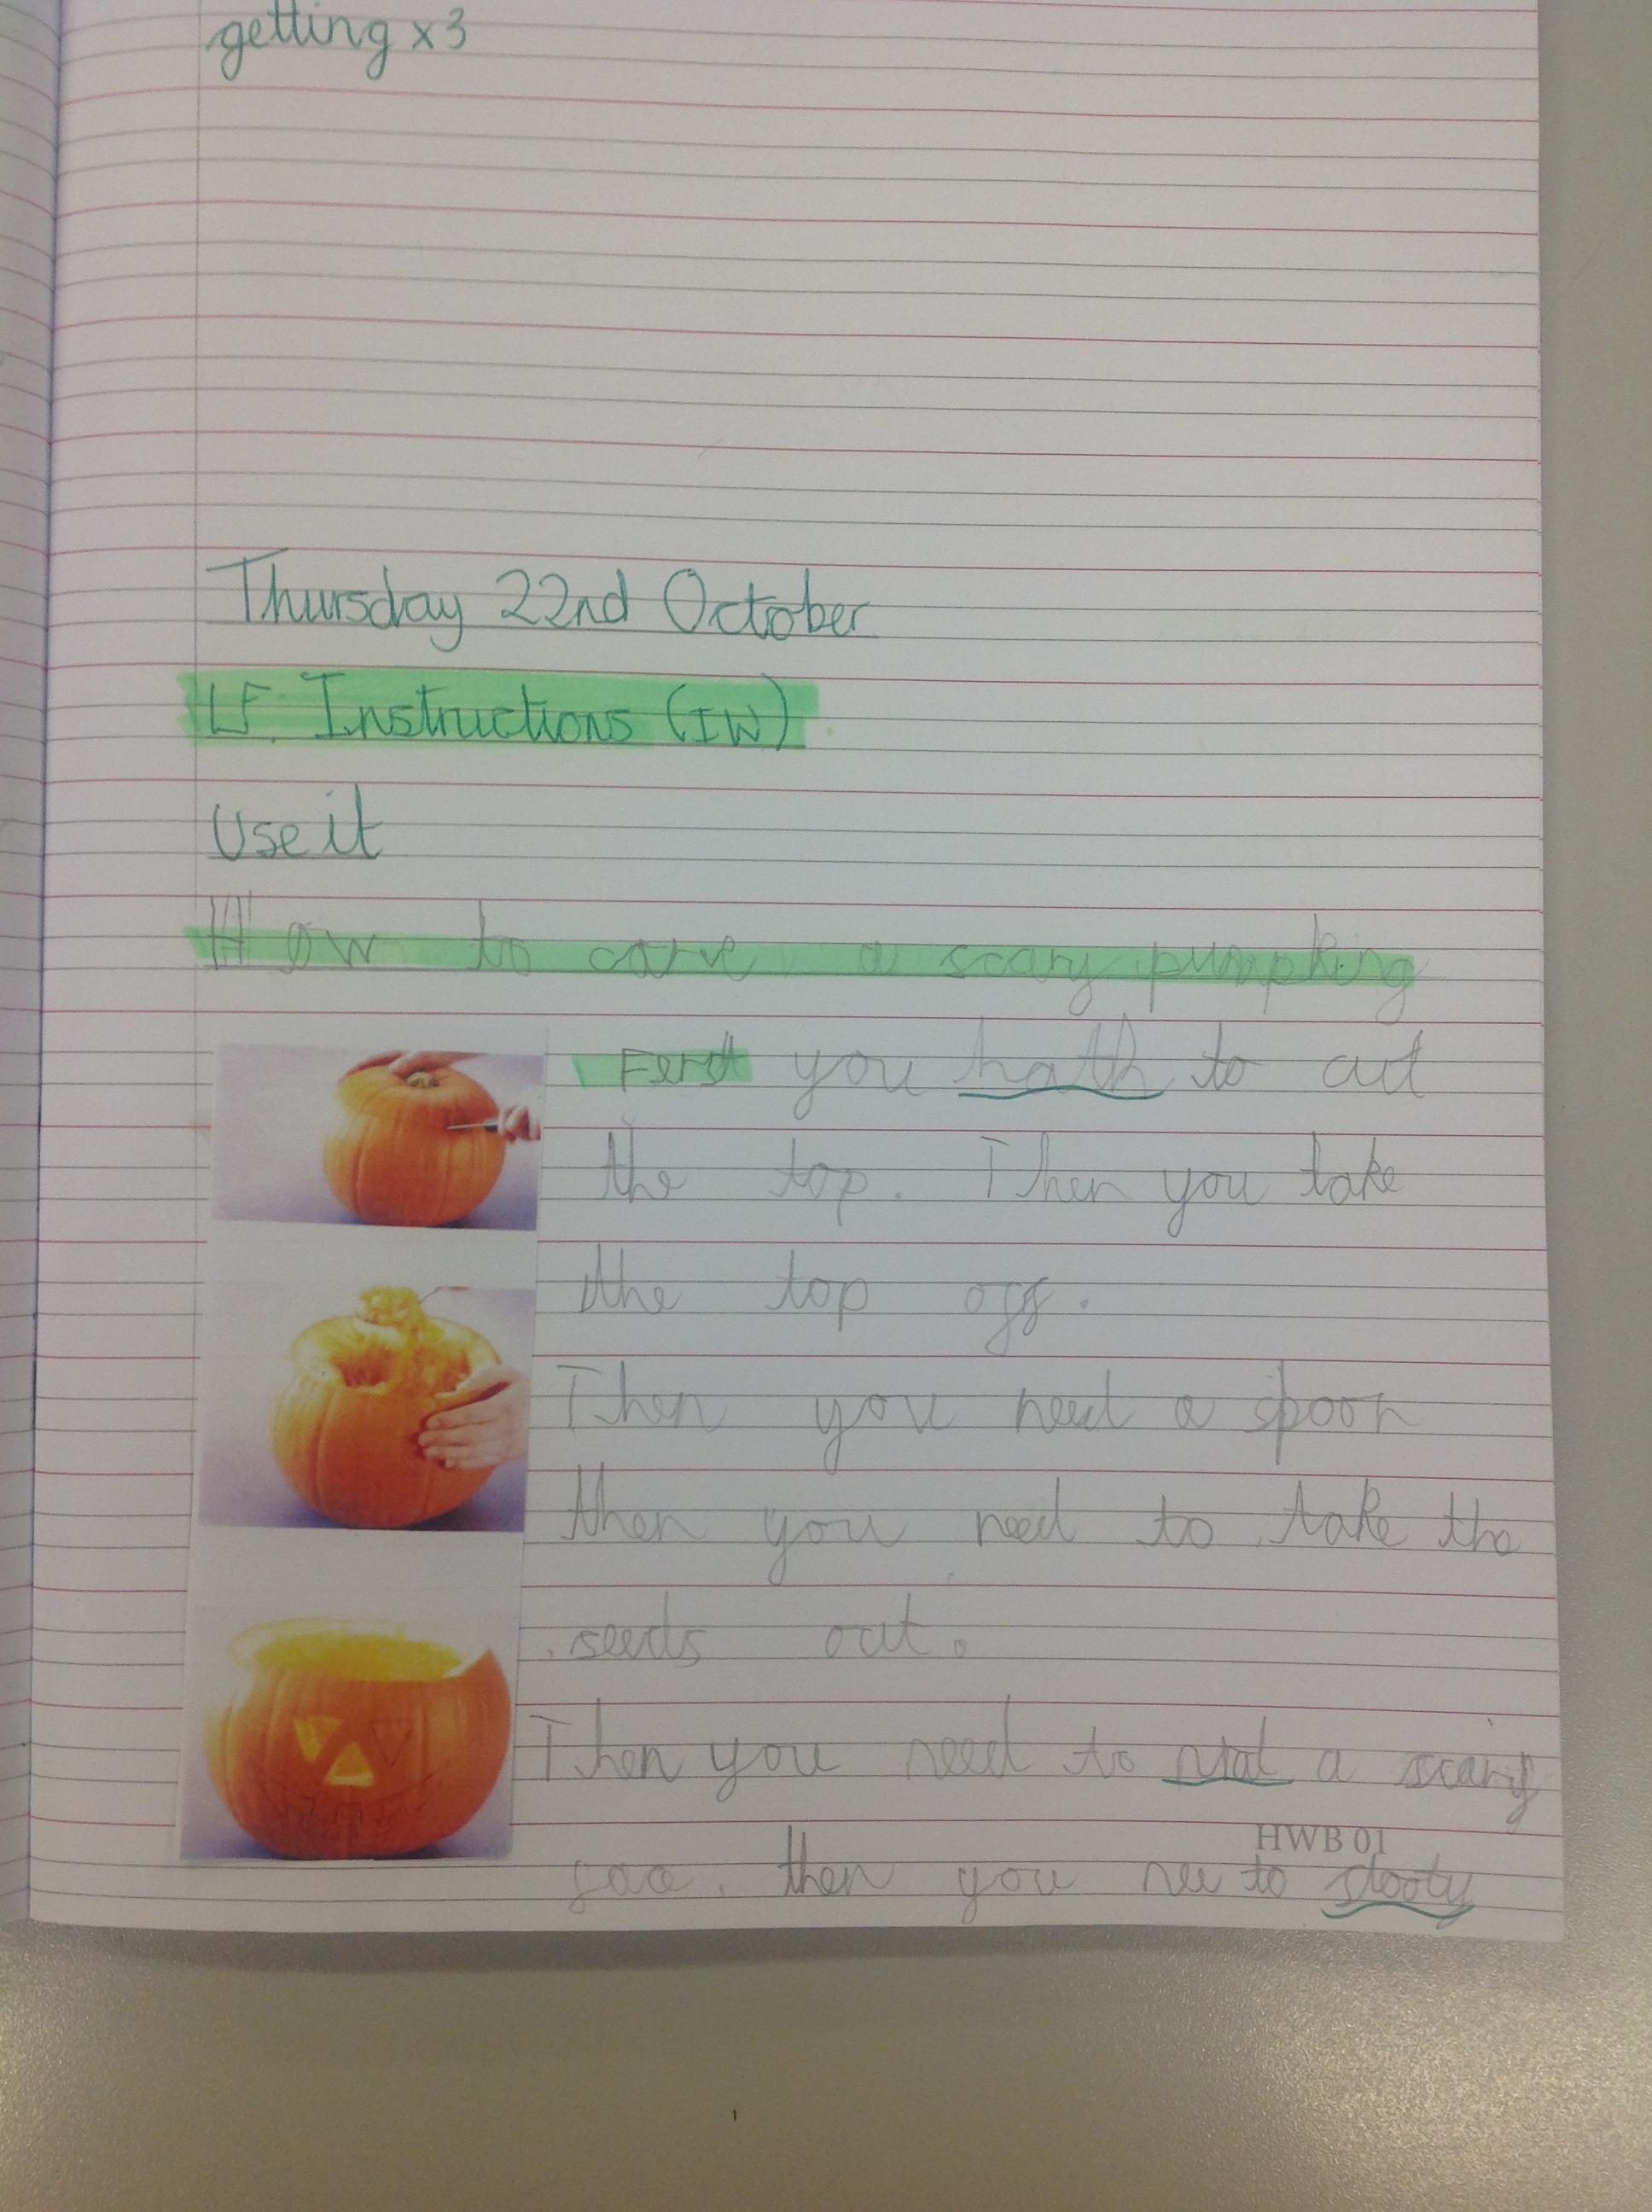 getting x3
Thursday 22nd October
LF: Instructions (IW)
Use it
How to carve a scary pumpking
Ferst you hath to cut
the top. Then you take
the top off.
Then you need a spoon
then you need to take the
seeds out.
Then you need to a scary
HWB 01
then you nee to